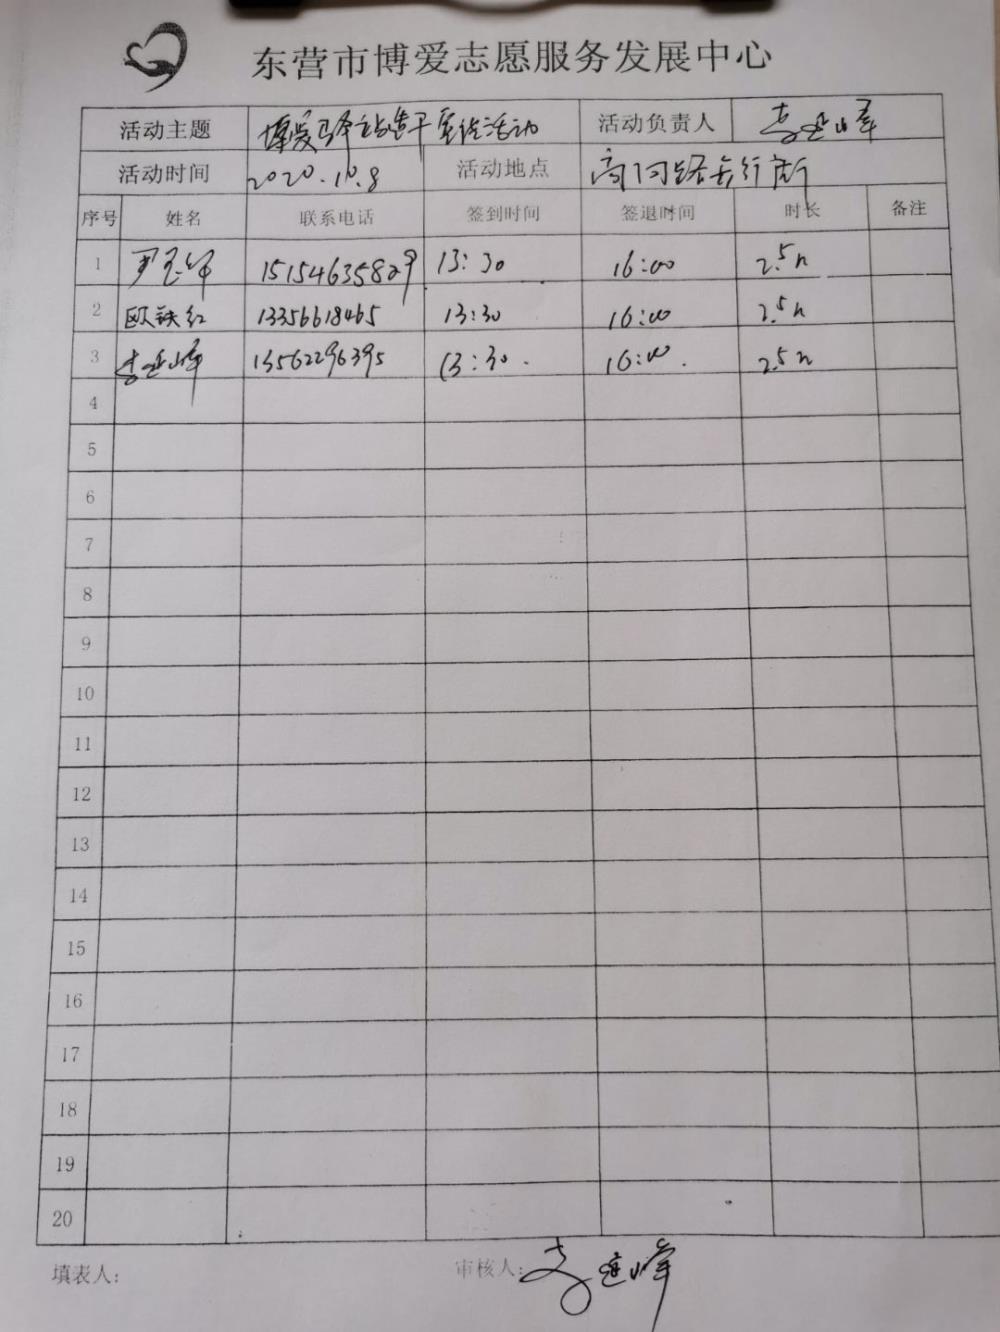 东营市博爱志愿服务发展中心
活动主题 博爱 活动 活动负责人 李延峰
活动时间 2020.10.8 活动地点
序号 姓名 联系电话 签到时间 签退时间 时长 备注
1 15154635829 13:30 16:00 2.5h
2 欧铁红 13356618465 13:30 16:00 2.5h
3 李延峰 13562296395 13:30. 16:00. 2.5h
4
5
6
7
8
9
10
11
12
13
14
15
16
17
18
19
20
填表人: 审核人: 李延峰